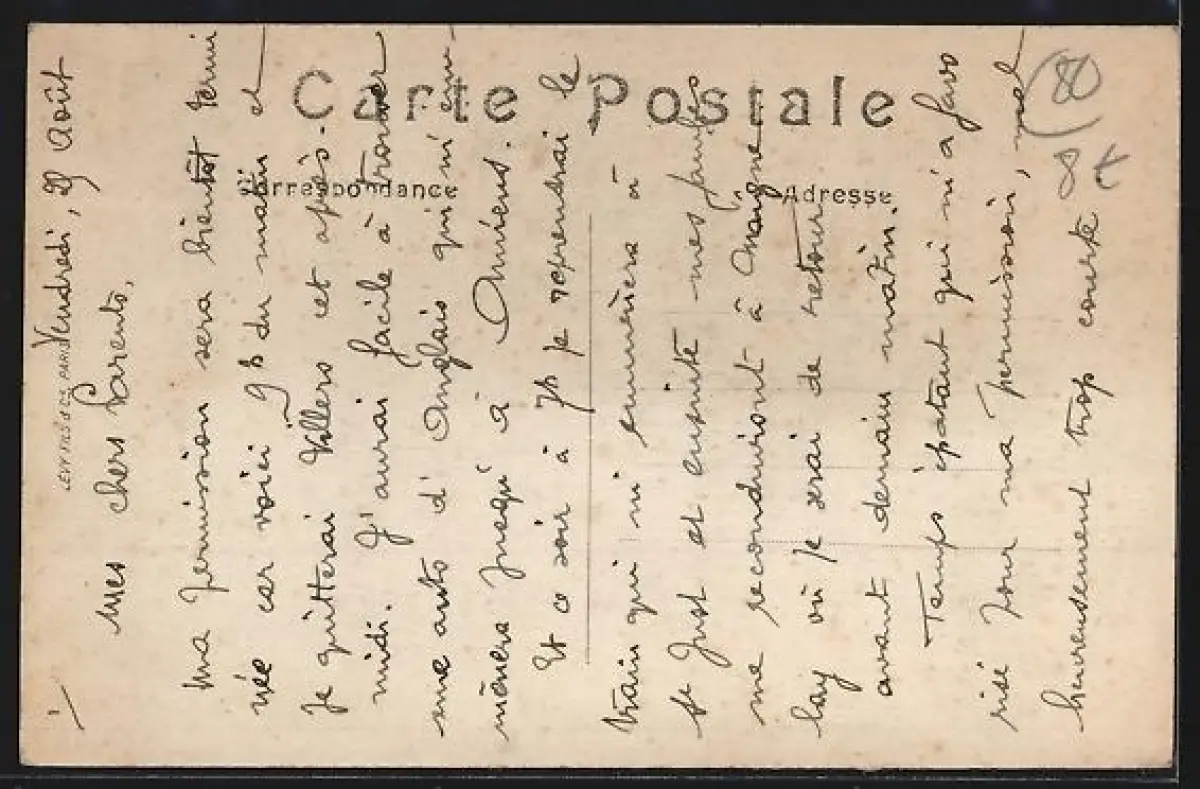 Carte Postale
Correspondance
Adresse
LEVY FILS & Cie PARIS
Vendredi, 29 Août
Mes chers Parents,
Ma permission sera bientôt termi
née car voici 9h du matin et
je quitterai Villers cet après-
midi. J'aurai facile à trouver
une auto d'Anglais qui m'em-
mènera jusqu'à Amiens.
Et ce soir à 7h je reprendrai le
train qui m'emmènera à
St Just et ensuite mes
me reconduiront à
lay où je serai de retour
avant demain matin.
Temps épatant qui m'a favo
risé pour ma permission, mal
heureusement trop courte